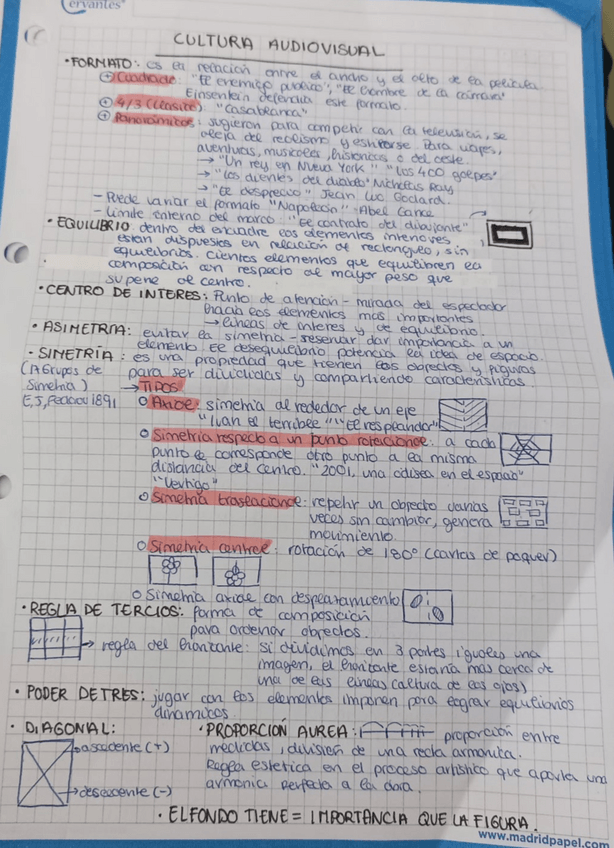 Cervantes
CULTURA AUDIOVISUAL
· FORMATO: es la relación entre el ancho y el alto de la película
Cuadrado: "El enemigo público", "El hombre de la cámara"
Einsentein defendía este formato.
4/3 (clásico): "Casablanca"
Panorámicos: surgieron para competir con la televisión, se
aleja del realismo y eshtorse. Para viajes,
aventuras, musicales, historicos o del oeste.
→ "Un rey en Nueva York" "Los 400 golpes"
→ "Los dientes del diablo" Nicholas Ray
→ "El desprecio" Jean Luc Godard.
- Puede variar el formato "Napoleón" Abel Gance
- Límite interno del marco: "El contrato del dibujante"
· EQUILIBRIO dentro del encuadre los elementos interiores
están dispuestos en relación al rectángulo, sin
equilibrios. Cientos elementos que equilibren la
composición con respecto al mayor peso que
supone al centro.
· CENTRO DE INTERES: Punto de atención - mirada del espectador
hacia los elementos más importantes
→ líneas de interés y de equilibrio.
· ASIMETRIA: evitar la simetría - reservar dar importancia a un
elemento. El desequilibrio potencia la idea de espacio.
· SIMETRÍA: es una propiedad que tienen los objetos y figuras
(A Grupos de para ser divididas y compartiendo características
Simetría) → TIPOS
E,S, Fedorov 1891
o Axial: simetría alrededor de un eje
"Iván el terrible" "El resplandor"
o Simetría respecto a un punto rotacional: a cada
punto le corresponde otro punto a la misma
distancia del centro. "2001, una odisea en el espacio"
"Vértigo"
o Simetría traslacional: repetir un objecto varias
veces sin cambiar, genera
movimiento.
o Simetría central: rotación de 180º (cartas de poquer)
o Simetría axial con desplazamiento
· REGLA DE TERCIOS: forma de composición
para ordenar objectos.
→ regla del horizonte: si dividimos en 3 partes iguales una
imagen, el horizonte estaría más cerca de
una de las líneas (altura de los ojos)
· PODER DE TRES: jugar con los elementos impares para lograr equilibrios
dinámicos
· DIAGONAL:
→ ascendente (+)
→ descendente (-)
· PROPORCIÓN AUREA: proporción entre
medidas, división de una recta armónica.
Regla estética en el proceso artístico que aporta una
armonía perfecta a la obra.
· EL FONDO TIENE = IMPORTANCIA QUE LA FIGURA.
www.madridpapel.com